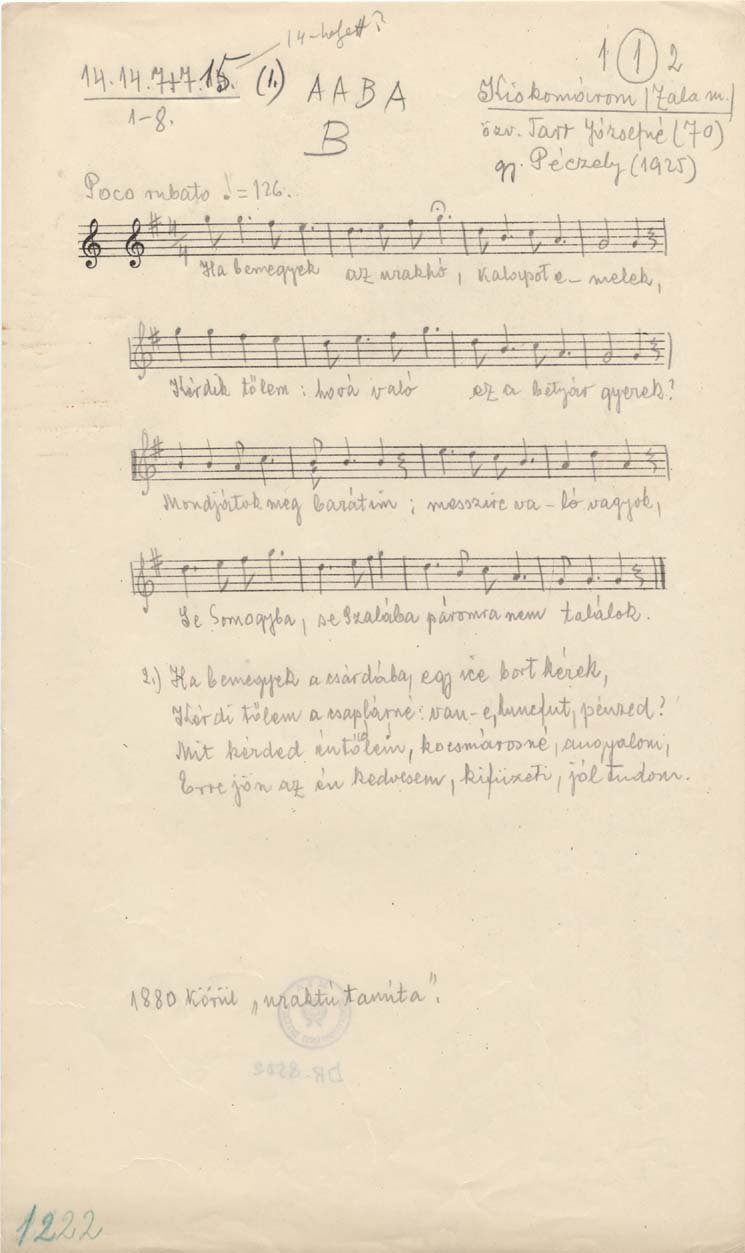 14-helyett?
14.14.7+7.15. (1.)
1-8.
A A B A
B
1 1 2
Kiskomárom (Zala m.)
özv. Tart Józsefné (70)
gy. Péczely (1925)
Poco rubato ♩=126.
4/4
Ha bemegyek az urakhó, kalapot e- melek,
Kérdik tőlem: hová való ez a betyár gyerek?
Mondjátok meg barátim; messzire va-ló vagyok,
Se Somogyba, se Szalába páromra nem találok.
2.) Ha bemegyek a csárdába, egy ice bort kérek,
Kérdi tőlem a csaplárné: van-e, huncfut, pénzed?
Mit kérded éntőlem, kocsmárosné, angyalom,
Erre jön az én kedvesem, kifizeti, jól tudom.
1880 körül „uraktú tanúta".
1222